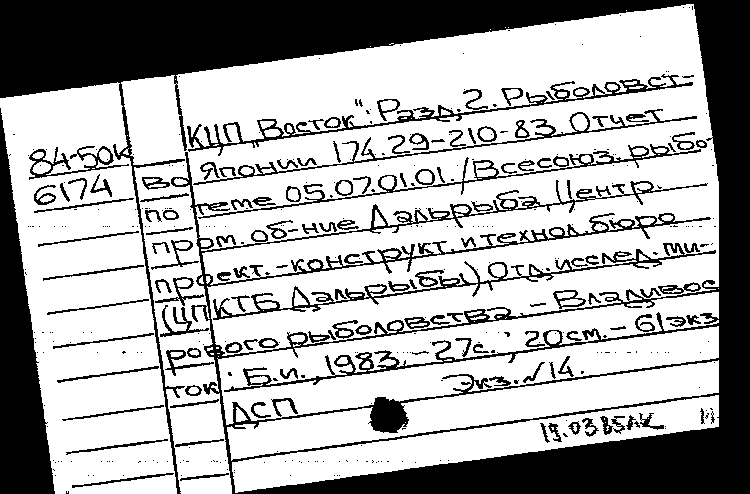 КЦП „Восток": Разд. 2. Рыболовст-
84-50К
во Японии 174.29-210-83. Отчет
6174
по теме 05.07.01.01. /Всесоюз. рыбо-
пром. об-ние Дальрыба, Центр.
проект.-конструкт. и технол. бюро
(ЦПКТБ Дальрыбы), Отд. исслед. ми-
рового рыболовства. – Владивос
ток: Б.и., 1983. – 27с.; 20см. – 61экз
Экз. №14.
ДСП
19.03.85